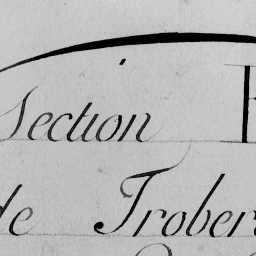 Section
de Trober